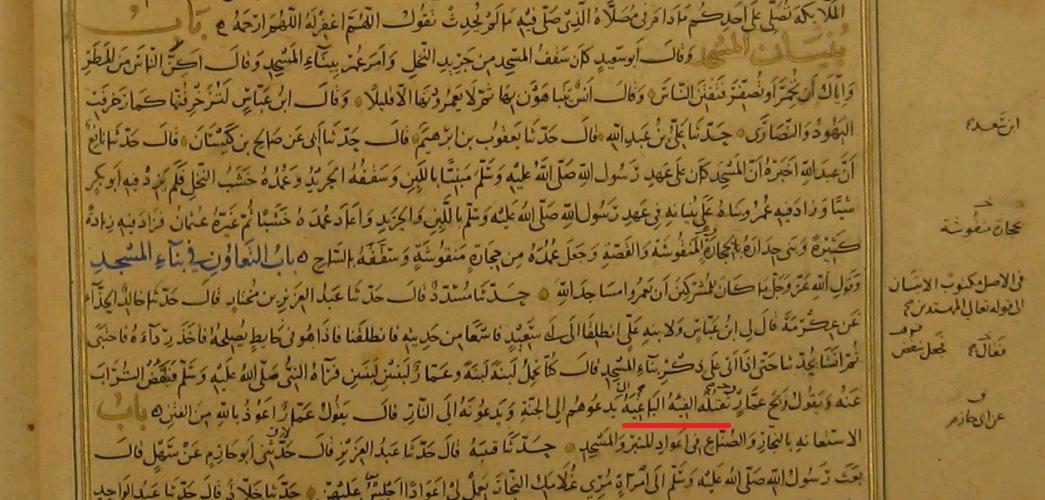 الملائكة تصلي على أحدكم ما دام في مصلاه الذي صلى فيه ما لم يحدث تقول اللهم اغفر له اللهم ارحمه باب
بنيان المسجد وقال أبو سعيد كان سقف المسجد من جريد النخل وأمر عمر ببناء المسجد وقال أكن الناس من المطر
وإياك أن تحمر أو تصفر فتفتن الناس وقال أنس يتباهون بها ثم لا يعمرونها إلا قليلا وقال ابن عباس لتزخرفنها كما زخرفت
اليهود والنصارى حدثنا علي بن عبد الله قال حدثنا يعقوب بن ابرهيم قال حدثنا أبي عن صالح بن كيسان قال حدثنا نافع
أن عبد الله أخبره أن المسجد كان على عهد رسول الله صلى الله عليه وسلم مبنيا باللبن وسقفه الجريد وعمده خشب النخل فلم يزد فيه أبو بكر
شيئا وزاد فيه عمر وبناه على بنيانه في عهد رسول الله صلى الله عليه وسلم باللبن والجريد وأعاد عمده خشبا ثم غيره عثمان فزاد فيه زيادة
كثيرة وبنى جداره بالحجارة المنقوشة والقصة وجعل عمده من حجارة منقوشة وسقفه بالساج باب التعاون في بناء المسجد
وقول الله عز وجل ما كان للمشركين أن يعمروا مساجد الله حدثنا مسدد قال حدثنا عبد العزيز بن مختار قال حدثنا خالد الحذاء
عن عكرمة قال لي ابن عباس ولابنه علي انطلقا إلى أبي سعيد فاسمعا من حديثه فانطلقنا فإذا هو في حايط يصلحه فأخذ رداءه فاحتبى
ثم أنشأ يحدثنا حتى إذا أتى على ذكر بناء المسجد قال كنا نحمل لبنة لبنة وعمار لبنتين لبنتين فرآه النبي صلى الله عليه وسلم فينفض التراب
عنه ويقول ويح عمار تقتله الفئة الباغية يدعوهم إلى الجنة ويدعونه إلى النار قال يقول عمار أعوذ بالله من الفتن باب
الاستعانة بالنجار والصناع في أعواد المنبر والمسجد حدثنا قتيبة قال حدثنا عبد العزيز قال حدثني أبو حازم عن سهل قال
بعث رسول الله صلى الله عليه وسلم إلى امرأة مري غلامك النجار يعمل لي أعوادا أجلس عليهن حدثنا خلاد قال حدثنا عبد الواحد
ابن سعد
بحجارة منقوشة
في الأصل مكتوب الانسان
إلى قوله تعالى المهتدين
فقال
فجعل ينفض
عن أبي حازم